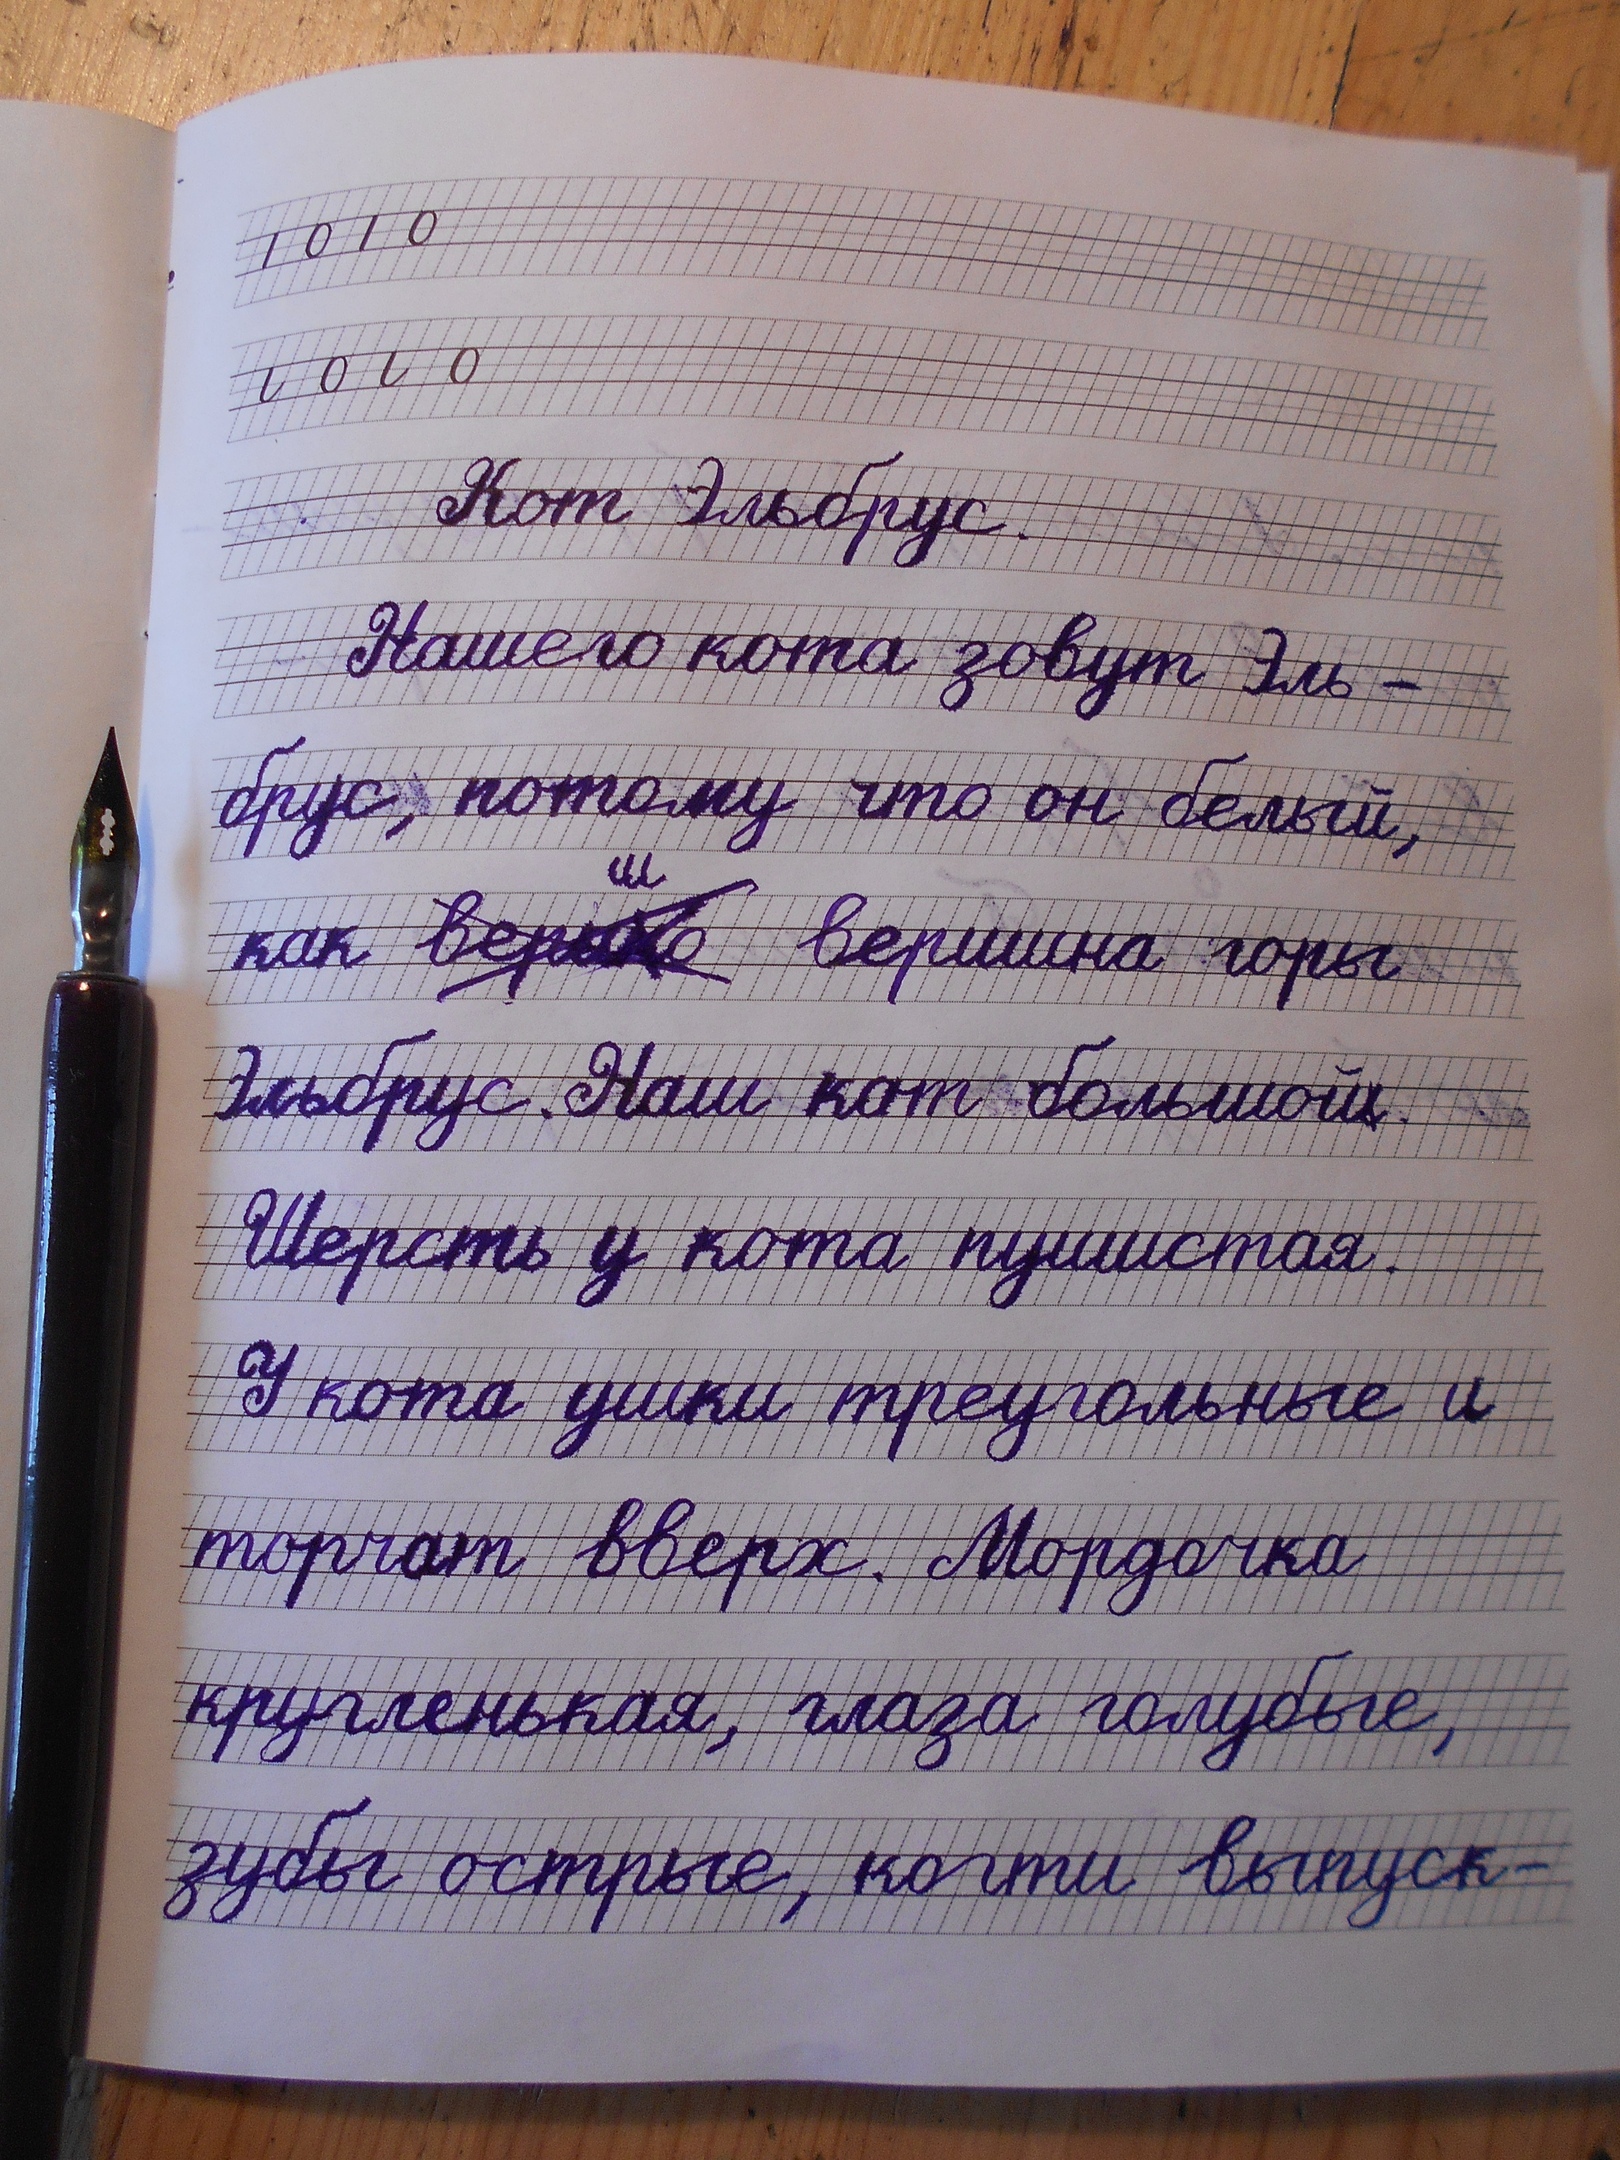 1 0 1 0
ι 0 ι 0
Кот Эльбрус.
Нашего кота зовут Эль-
брус, потому что он белый,
ш
как вершина горы
Эльбрус. Наш кот большой.
Шерсть у кота пушистая.
У кота ушки треугольные и
торчат вверх. Мордочка
кругленькая, глаза голубые,
зубы острые, когти выпуск-